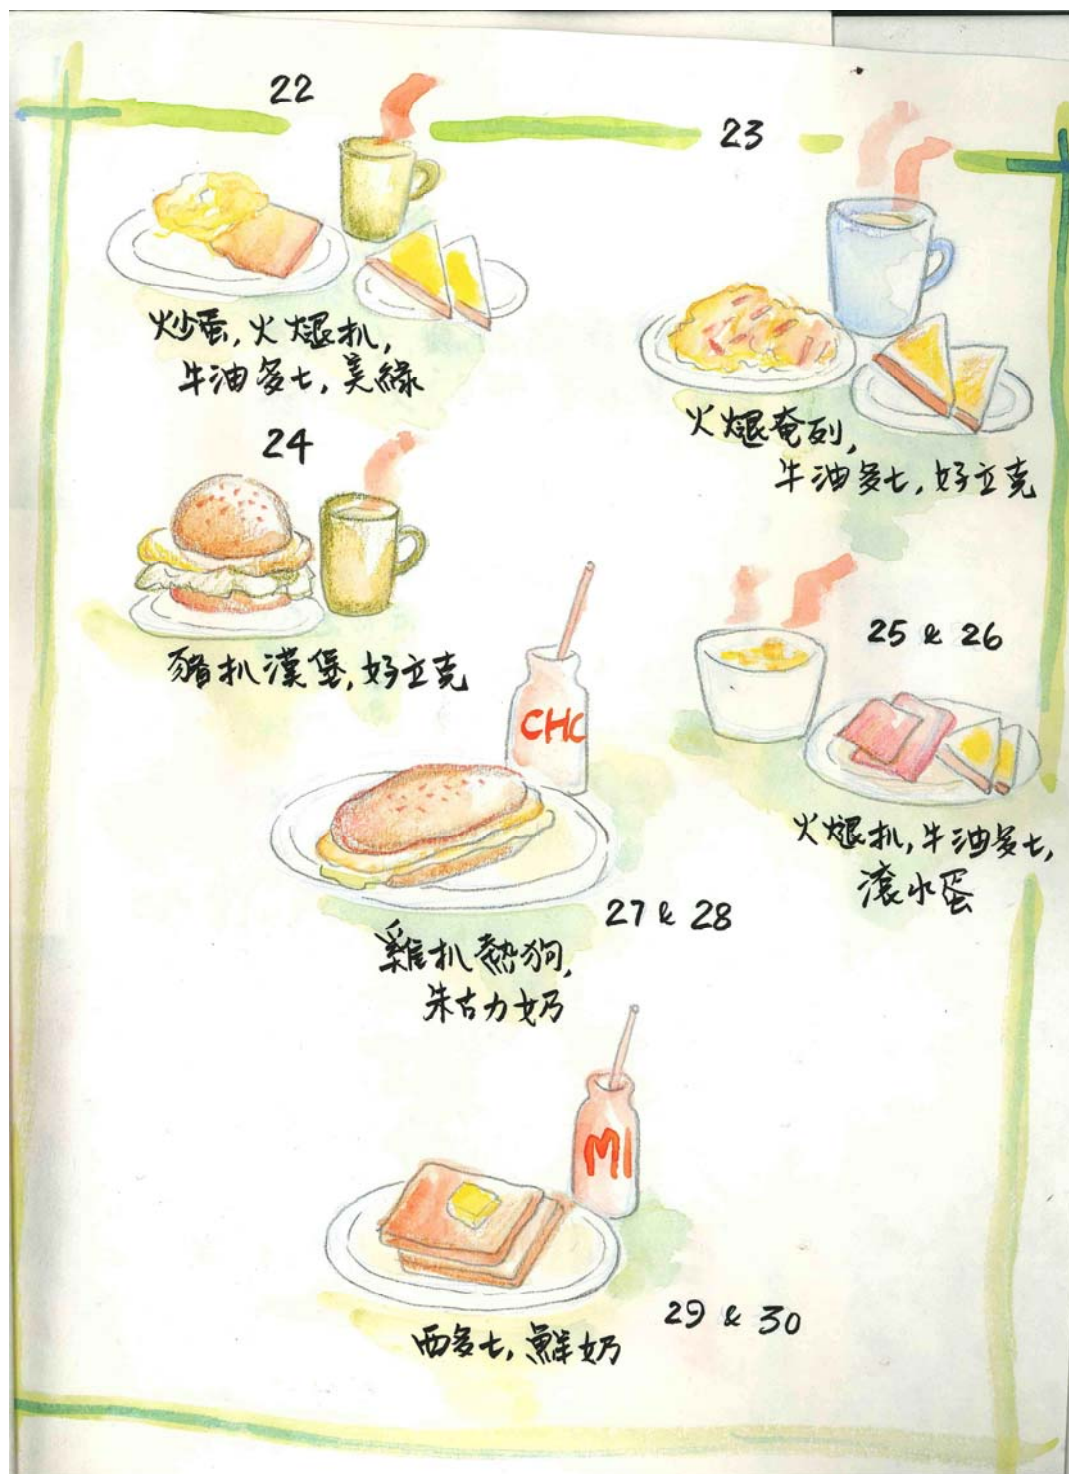 22
炒蛋,火腿扒,
牛油多士,美綠
23
火腿奄列,
牛油多士,好立克
24
豬扒漢堡,好立克
25 & 26
火腿扒,牛油多士,
滾水蛋
CHC
27 & 28
雞扒熱狗,
朱古力奶
MI
29 & 30
西多士,鮮奶